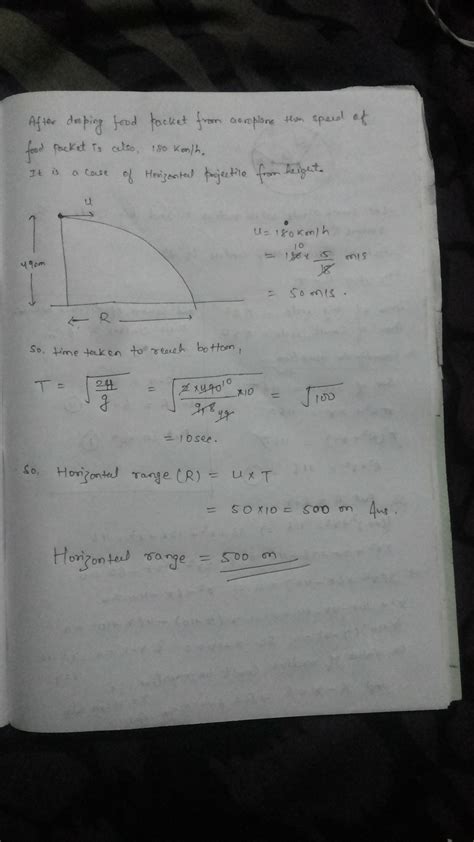 After droping food packet from aeroplane then speed of
food packet is also, 180 km/h.
It is a case of Horizontal projectile from height.
u
u = 180 km/h
= 180 10 × 5/18 m/s
= 50 m/s.
R
So, time taken to reach bottom,
T = √(2H/g) = √(2×490 10/9.8 49 ×10) = √100
= 10 sec.
So, Horizontal range (R) = u × T
= 50×10 = 500 m Ans.
Horizontal range = 500 m